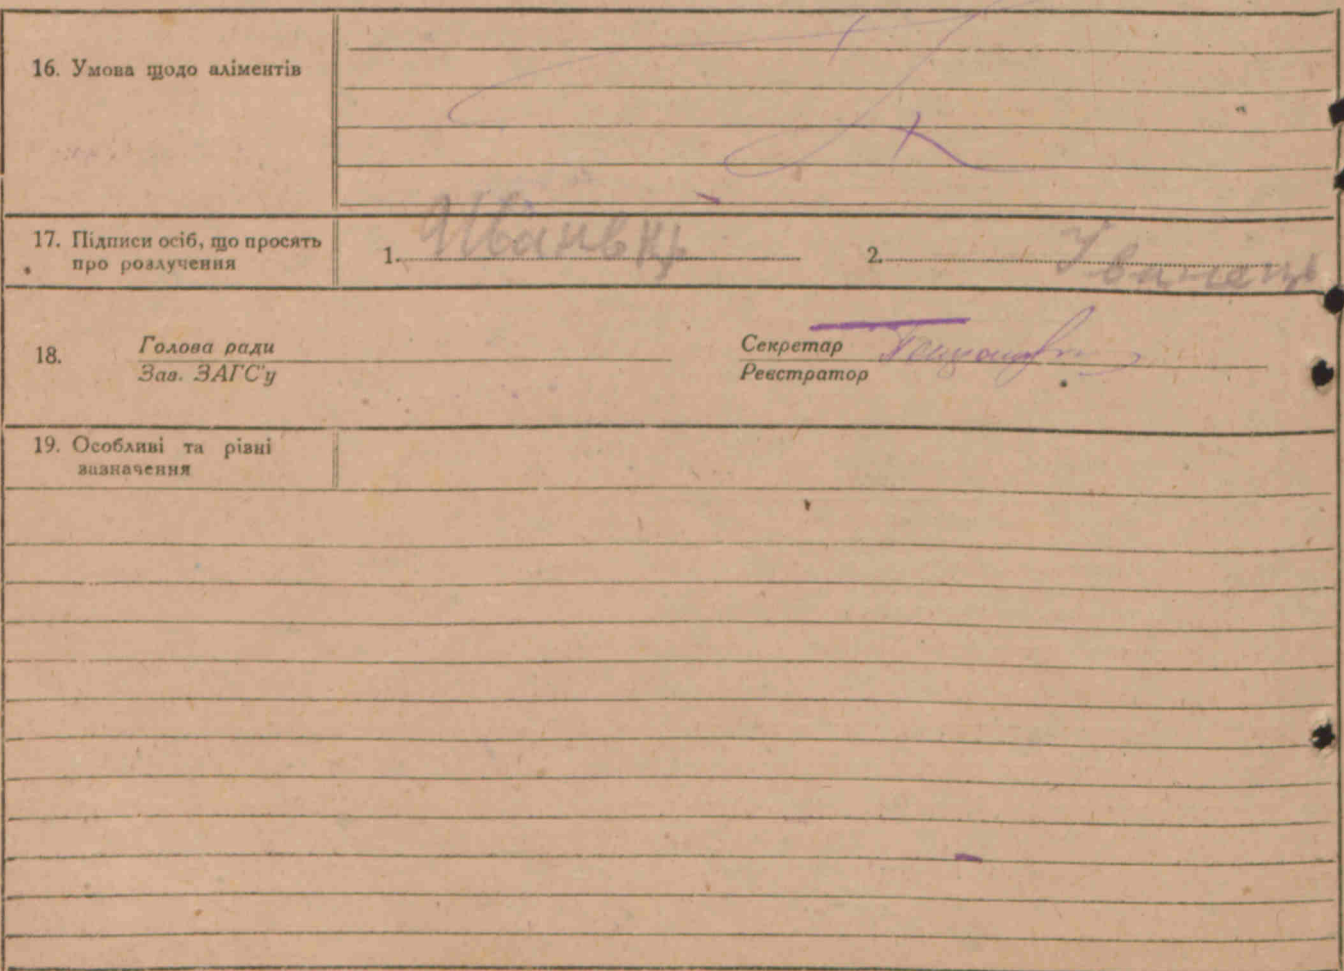 16. Умова щодо аліментів
17. Підписи осіб, що просять
про розлучення
1. Иванвць 2. Іванець
18. Голова ради
Зав. ЗАГС'у
Секретар
Реєстратор
19. Особливі та різні
зазначення